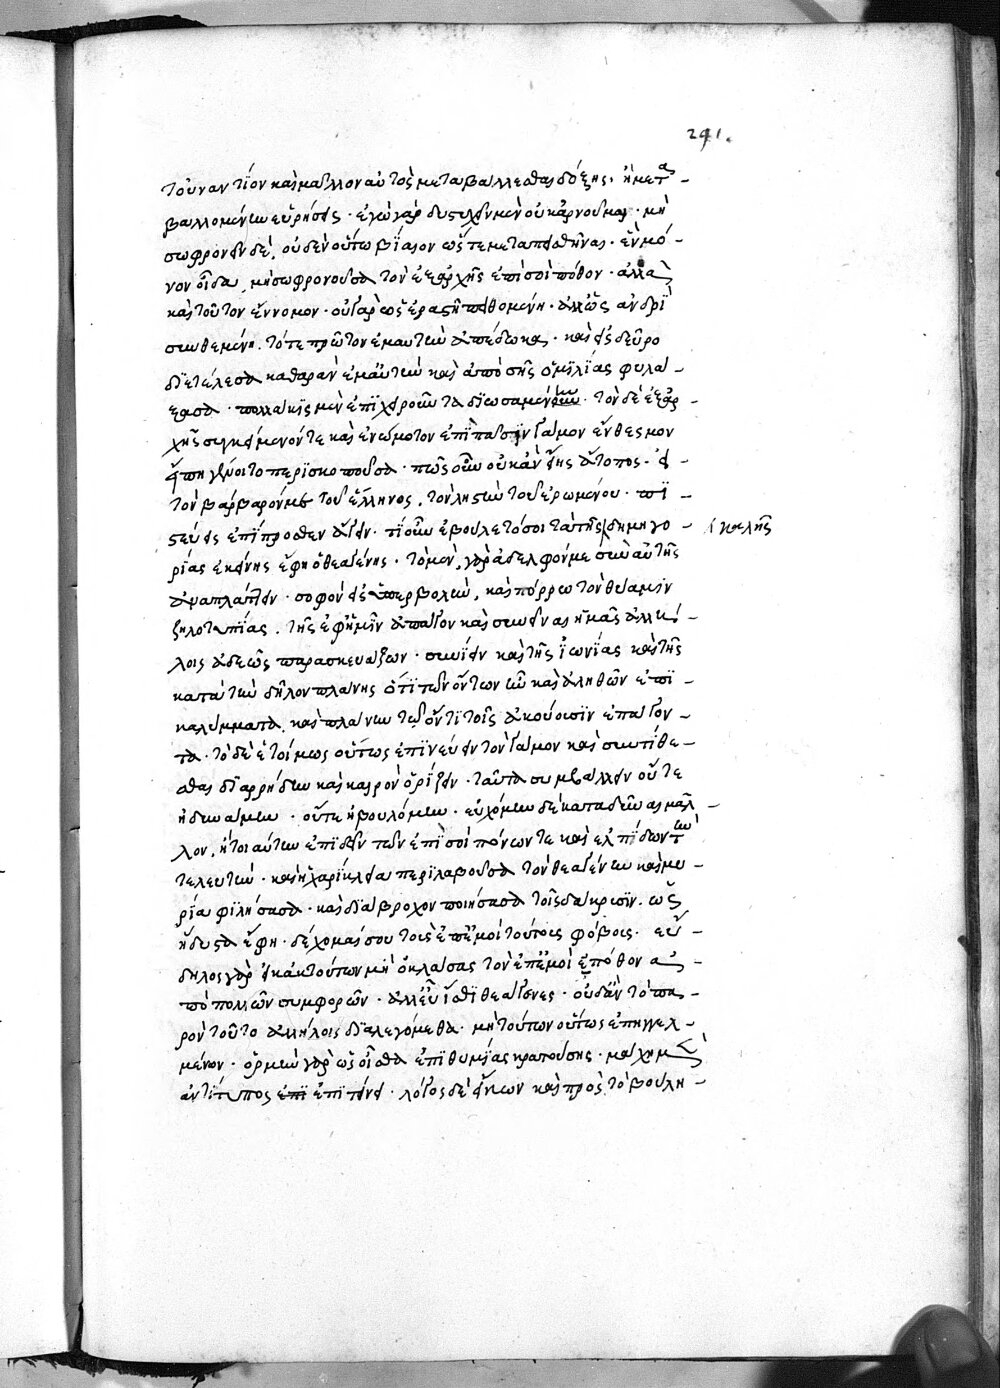 241.
τοὐναντίον καὶ μᾶλλον αὐτὸς μεταβάλλεσθαι δόξῃς. ἢ μετα-
βαλλομένην εὑρήσεις. ἐγὼ γὰρ δυστυχεῖν μὲν οὐκ ἀρνοῦμαι. μὴ
σωφρονεῖν δὲ, οὐδὲν οὕτω βίαιον ὥστε μεταπεισθῆναι. ἓν μό-
νον οἶδα μὴ σωφρονοῦσα τὸν ἐξ ἀρχῆς ἐπὶ σοὶ πόθον. ἀλλὰ
καὶ τοῦτον ἔννομον. οὐ γὰρ ὡς ἐραστῇ πειθομένη. ἀλλ' ὡς ἀνδρὶ
συνθεμένη. τότε πρῶτον ἐμαυτὴν ἀπέδωκα. καὶ εἰς δεῦρο
διετέλεσα καθαρὰν ἐμαυτὴν καὶ ἀπὸ σῆς ὁμιλίας φυλά-
ξασα. πολλάκις μὲν ἐπιχειροῦντα διωσαμένη. τὸν δὲ ἐξ ἀρ-
χῆς συγκείμενόν τε καὶ ἐνώμοτον ἐπὶ πᾶσιν γάμον ἔνθεσμον
εἴ πη γένοιτο περισκοποῦσα. πῶς οὖν οὐκ ἂν εἴης ἄτοπος. εἰ
τὸν βάρβαρόν με τοῦ ἕλληνος. τὸν λῃστὴν τοῦ ἐρωμένου. πι-
στεύεις ἐπίπροσθεν ἄγειν. τί οὖν ἐβούλετό σοι τὰ τῆς δημηγο- καλῆς
ρίας ἐκείνης ἔφη ὁ θεαγένης. τὸ μὲν γὰρ ἀδελφόν με σαυτῆς
ἀναπλάττειν. σοφὸν εἰς ὑπερβολὴν, καὶ πόρρω τὸν θύαμιν
ζηλοτυπίας. τῆς ἐφ' ἡμῖν ἀπάγον καὶ συνεῖναι ἡμᾶς ἀλλή-
λοις ἀδεῶς παρασκευάζων. συνίειν καὶ τῆς ἰωνίας καὶ τῆς
κατὰ τὴν δῆλον πλάνης ὅτι τῶν ὄντων ἦν καὶ ἀληθῶν ἐπι-
καλύμματα, καὶ πλάνην τῷ ὄντι τοῖς ἀκούουσιν ἐπάγον-
τα. τὸ δὲ ἑτοίμως οὕτως ἐπινεύειν τὸν γάμον καὶ συντίθε-
σθαι διαρρήδην καὶ καιρὸν ὁρίζειν. ταῦτα συμβάλλειν οὔτε
ἠδυνάμην. οὔτε ἠβουλόμην. εὐχόμην δὲ καταδῦναι μᾶλ-
λον, ἢ τοιαύτην ἐπιδεῖν τῶν ἐπὶ σοὶ πόνων τε καὶ ἐλπίδων τὴν
τελευτήν. καὶ ἡ χαρίκλεια περιλαβοῦσα τὸν θεαγένην καὶ μυ-
ρία φιλήσασα. καὶ διάβροχον ποιήσασα τοῖς δάκρυσιν. ὡς
ἥδιστα ἔφη. δέχομαί σου τοὺς ἐπ' ἐμοὶ τούτοις φόβοις. εὔ-
δηλος γὰρ εἶ κἀκ τούτων μὴ ὀκλάσας τὸν ἐπ' ἐμοὶ πόθον ἀ-
πὸ πολλῶν συμφορῶν. ἀλλ' εὖ ἴσθι θεάγενες. οὐδ' ἂν τὸ πα-
ρὸν τοῦτο ἀλλήλοις διαλεγόμεθα. μὴ τούτων οὕτως ἐπηγγελ-
μένων. ὁρμὴν γὰρ ὡς οἶσθα ἐπιθυμίας κρατούσης. μάχη μὲν
ἀντίτυπος ἐπὶ ἐπιτείνει. λόγος δὲ εἴκων καὶ πρὸς τὸ βούλη-